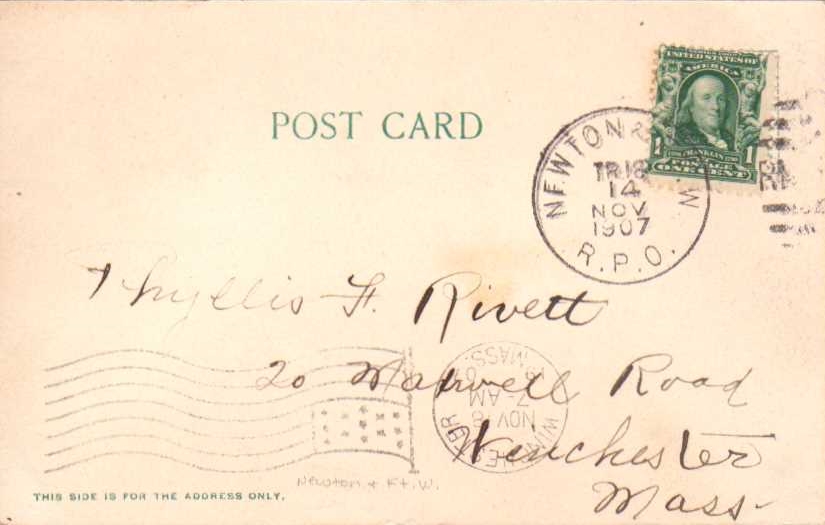 UNITED STATES OF
AMERICA
1 FRANKLIN 1
POSTAGE
ONE CENT
POST CARD
NEWTON & W
TR.18
14
NOV
1907
R.P.O.
Phyllis F. Rivett
20 Maxwell Road
Winchester
Mass.
WINCHESTER
NOV 18
7-AM
MASS.
Newton & Ft. W.
THIS SIDE IS FOR THE ADDRESS ONLY.